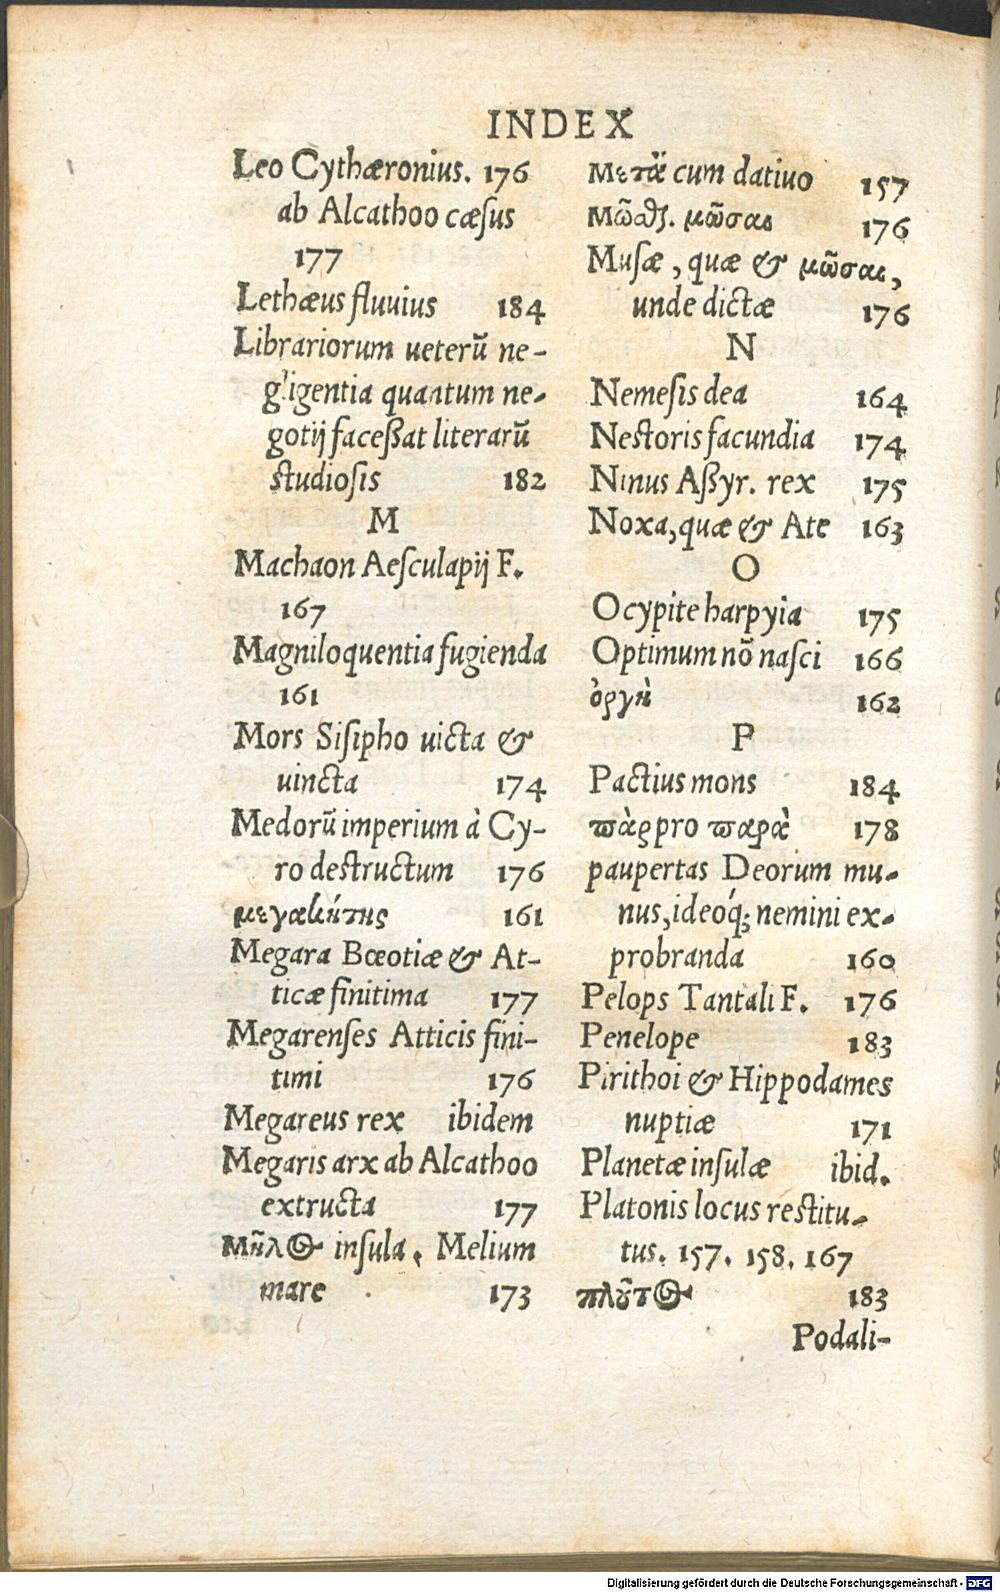 INDEX
Leo Cythæronius. 176
ab Alcathoo cæsus
177
Lethæus fluuius 184
Librariorum ueterũ ne-
gligentia quantum ne-
gotij faceßat literarũ
studiosis 182
M
Machaon Aesculapij F.
167
Magniloquentia fugienda
161
Mors Sisipho uicta &
uincta 174
Medorũ imperium à Cy-
ro destructum 176
μεγακήτης 161
Megara Bœotiæ & At-
ticæ finitima 177
Megarenses Atticis fini-
timi 176
Megareus rex ibidem
Megaris arx ab Alcathoo
extructa 177
Μῆλος insula. Melium
mare 173
Μετὰ cum datiuo 157
μῶσαι 176
Musæ, quæ & μῶσαι,
unde dictæ 176
N
Nemesis dea 164
Nestoris facundia 174
Ninus Aßyr. rex 175
Noxa, quæ & Ate 163
O
Ocypite harpyia 175
Optimum nõ nasci 166
ὀργὴ 162
P
Pactius mons 184
ϖὰρ pro ϖαρὰ 178
paupertas Deorum mu-
nus, ideoq́; nemini ex-
probranda 160
Pelops Tantali F. 176
Penelope 183
Pirithoi & Hippodames
nuptiæ 171
Planetæ insulæ ibid.
Platonis locus restitu-
tus. 157. 158. 167
πλοῦτος 183
Podali-
Digitalisierung gefördert durch die Deutsche Forschungsgemeinschaft - DFG